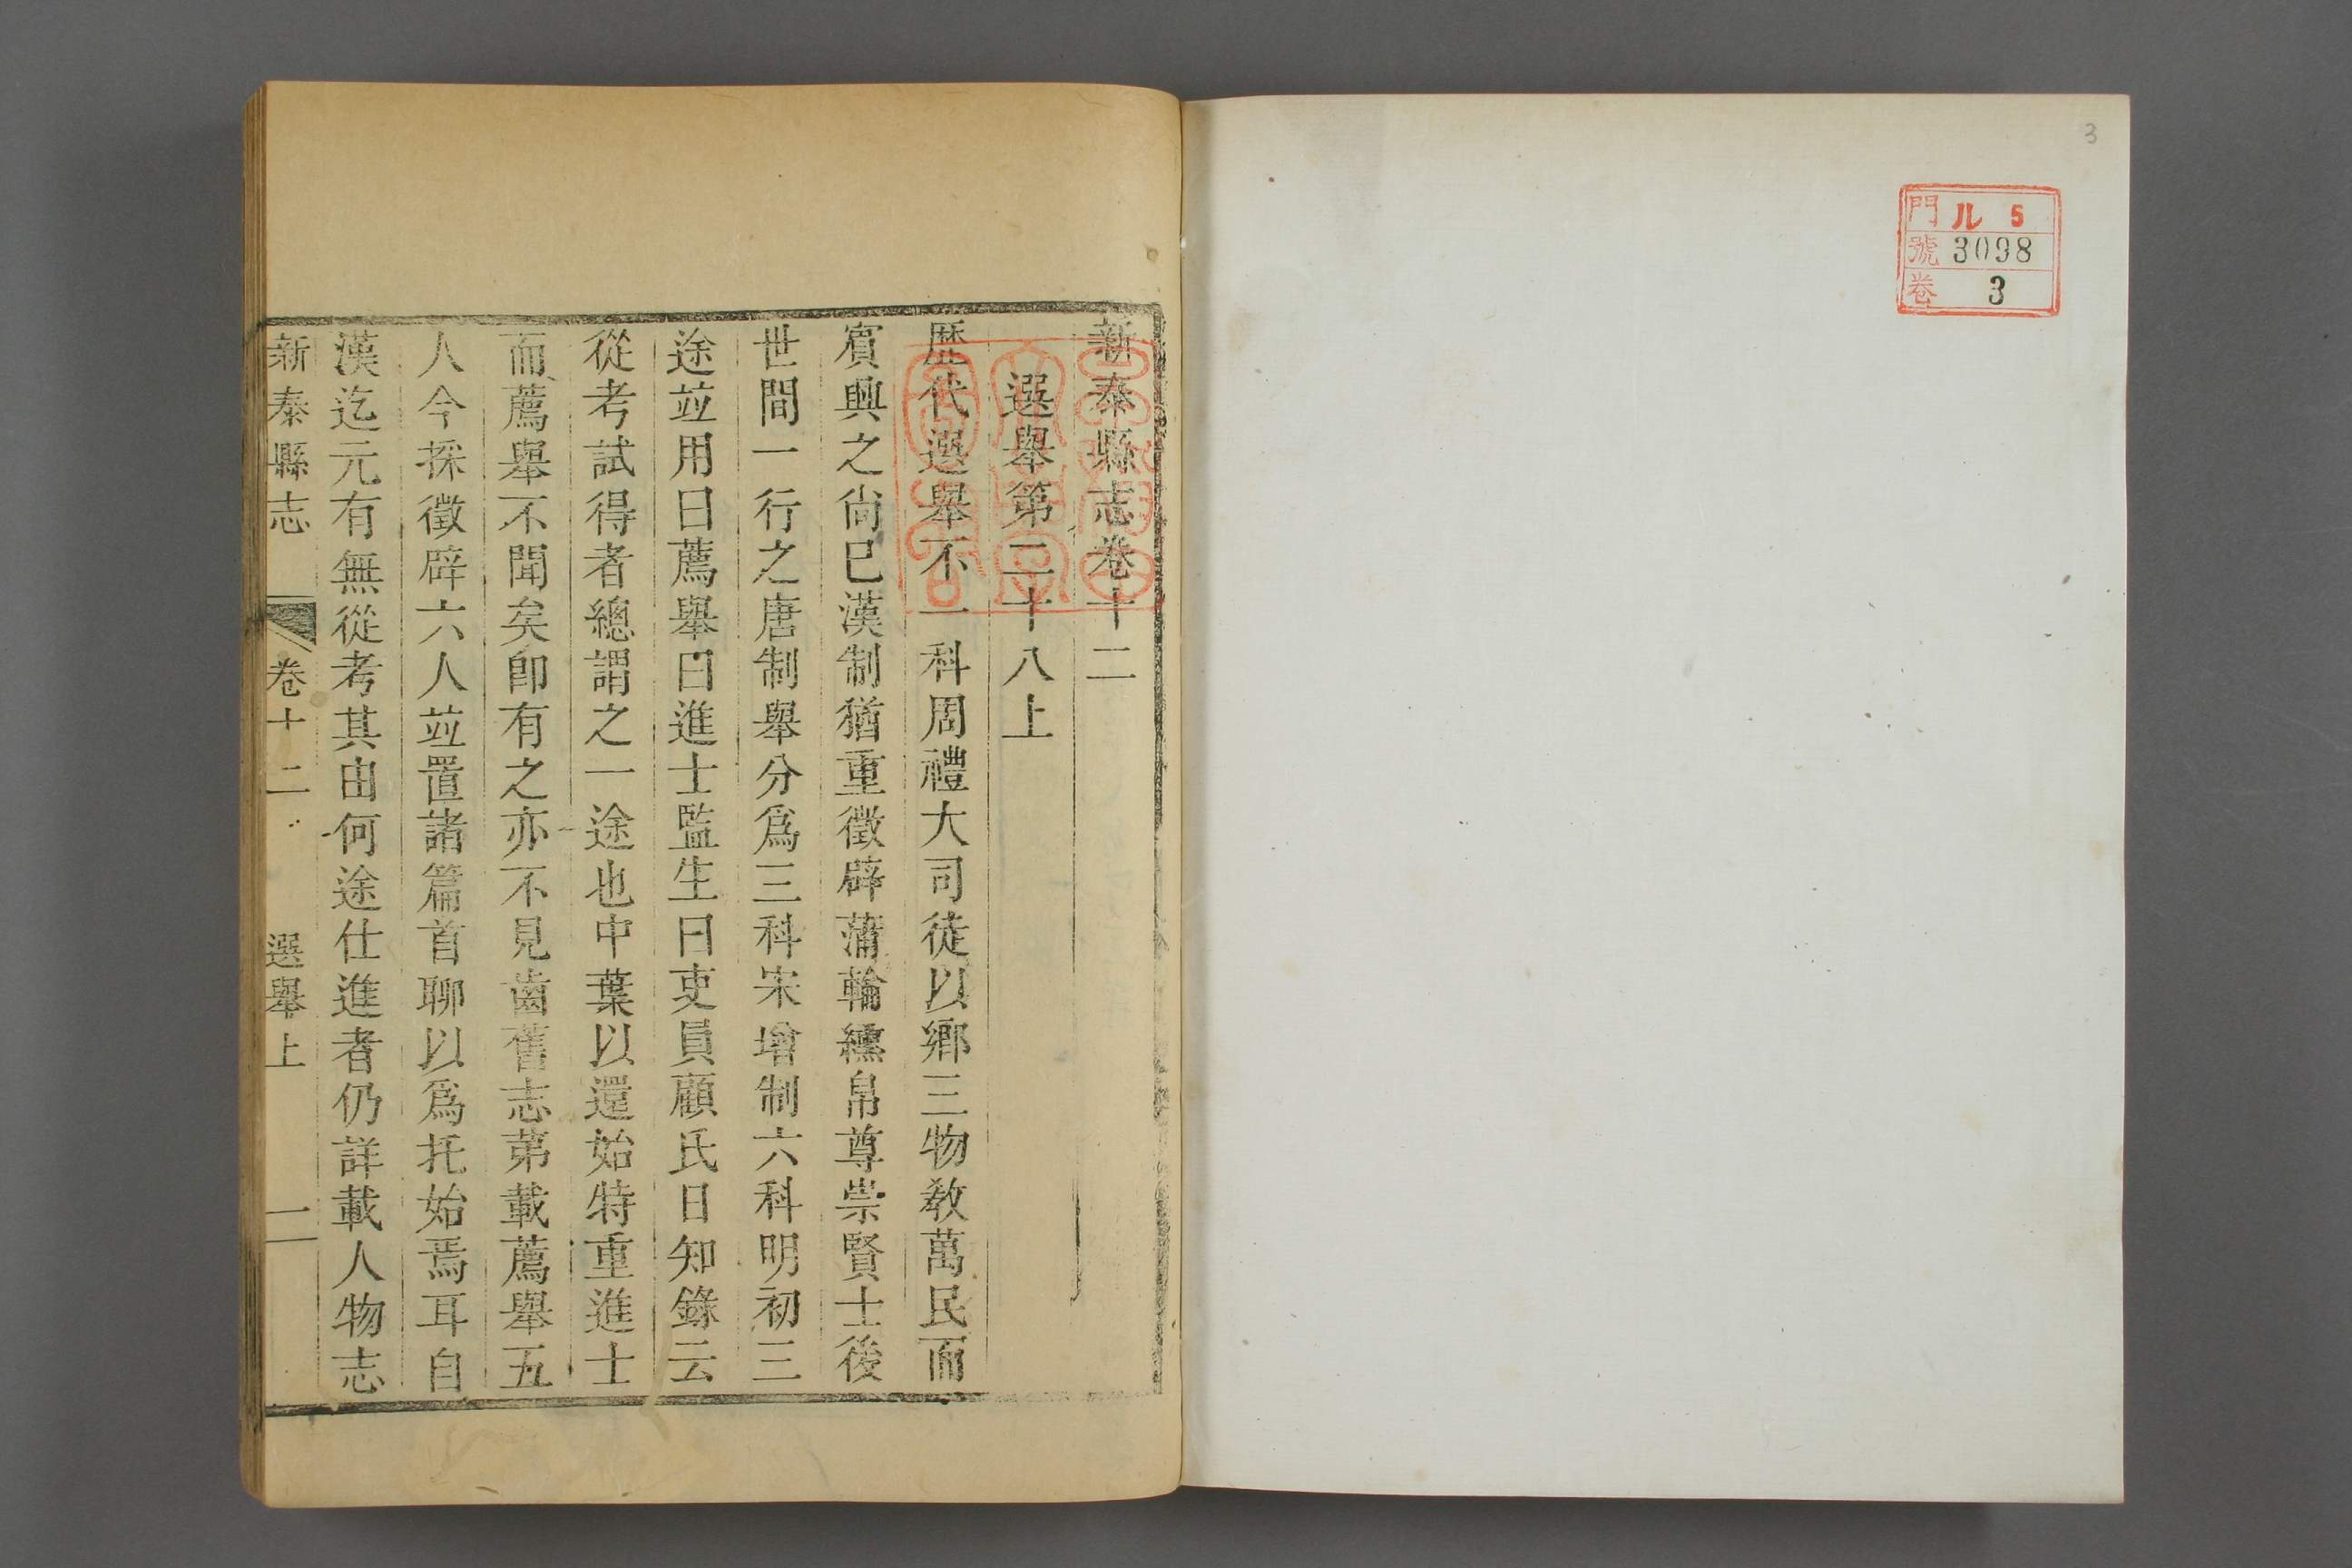 3
門 ル 5
號 3098
卷 3
新泰縣志卷十二
選舉第二十八上
歷代選舉不一科周禮大司徒以鄉三物教萬民而
賓興之尙巳漢制猶重徵辟蒲輪纁帛尊崇賢士後
世間一行之唐制舉分爲三科宋增制六科明初三
途並用曰薦舉曰進士監生曰吏員顧氏日知錄云
從考試得者總謂之一途也中葉以還始特重進士
而薦舉不聞矣卽有之亦不見齒舊志第載薦舉五
人今採徵辟六人並置諸篇首聊以爲托始焉耳自
漢迄元有無從考其由何途仕進者仍詳載人物志
新泰縣志 卷十二 選舉上 一